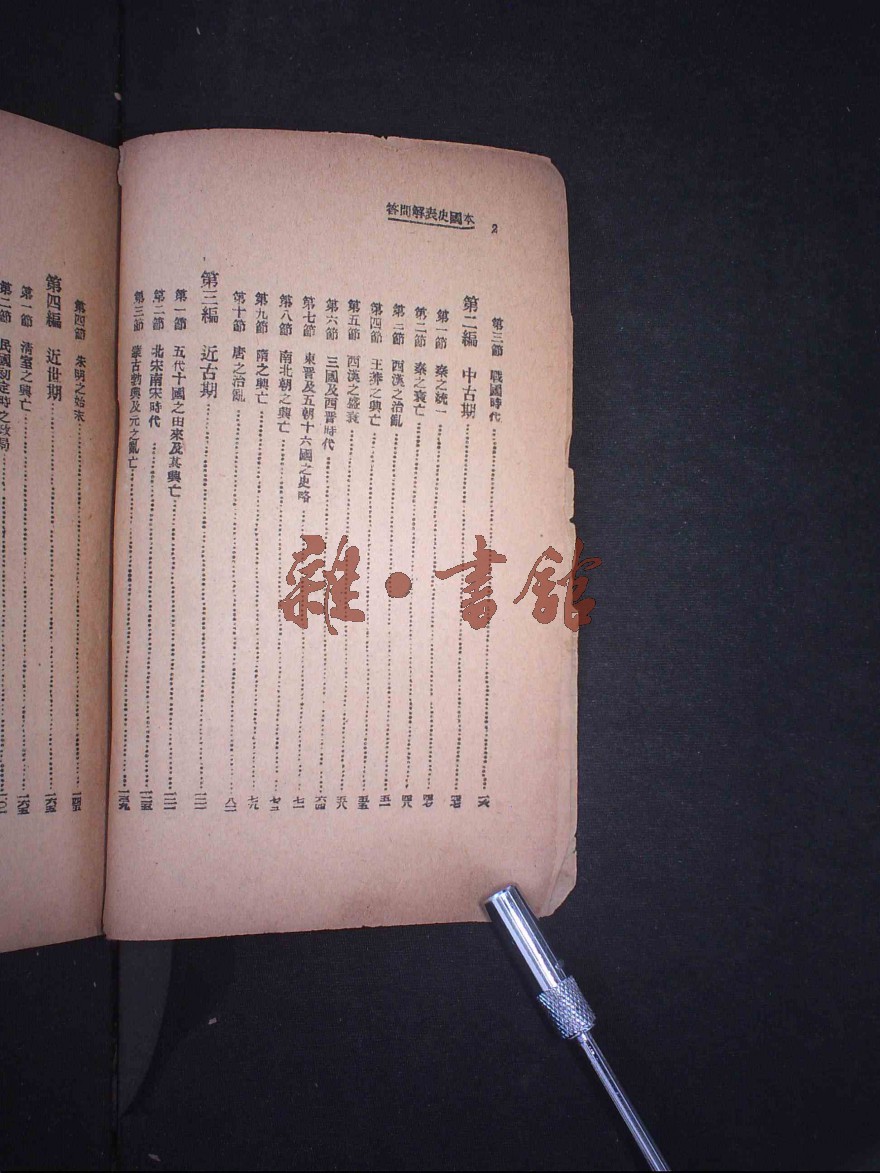 本國史表解問答
2
第三節 戰國時代
第二編 中古期
第一節 秦之統一
第二節 秦之衰亡
第三節 西漢之治亂
第四節 王莽之興亡
第五節 西漢之盛衰
第六節 三國及西晉時代
第七節 東晉及五朝十六國之史略 七一
第八節 南北朝之興亡
第九節 隋之興亡 七九
第十節 唐之治亂 八二
第三編 近古期
第一節 五代十國之由來及其興亡
第二節 北宋南宋時代
第三節 蒙古勃興及元之亂亡
第四節 朱明之始末
第四編 近世期
第一節 清室之興亡
第二節 民國初定時之政局
雜·書館